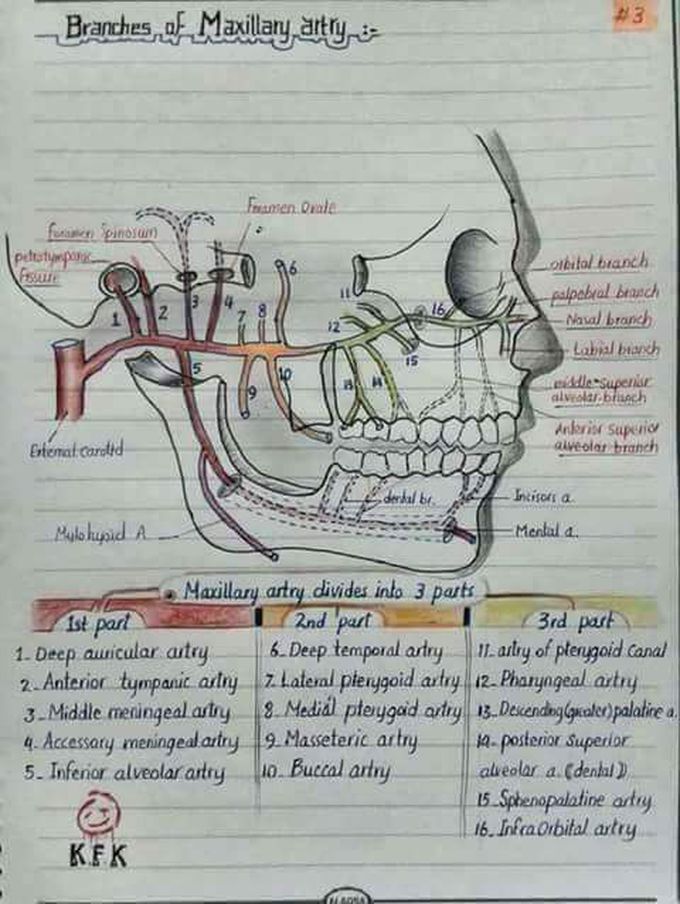 #3
Branches of Maxillary artry :-
Foramen Ovale
foramen Spinosum
petrotympanic
fissure
1
2
3
4
5
6
7
8
9
10
11
12
13
14
15
16
orbital branch
palpebral branch
Nasal branch
Labial branch
middle superior
alveolar branch
Anterior superior
alveolar branch
External carotid
dental br.
Incisors a.
Mylohyoid A
Mental a.
Maxillary artry divides into 3 parts
1st part
1_ Deep auricular artry
2_ Anterior tympanic artry
3_ Middle meningeal artry
4_ Accessary meningeal artry
5_ Inferior alveolar artry
2nd part
6_ Deep temporal artry
7_ Lateral pterygoid artry
8_ Medial pterygoid artry
9_ Masseteric artry
10_ Buccal artry
3rd part
11_ artry of pterygoid canal
12_ Pharyngeal artry
13_ Descending (greater) palatine a.
14_ posterior superior
alveolar a. (dental)
15_ Sphenopalatine artry
16_ InfraOrbital artry
KFK